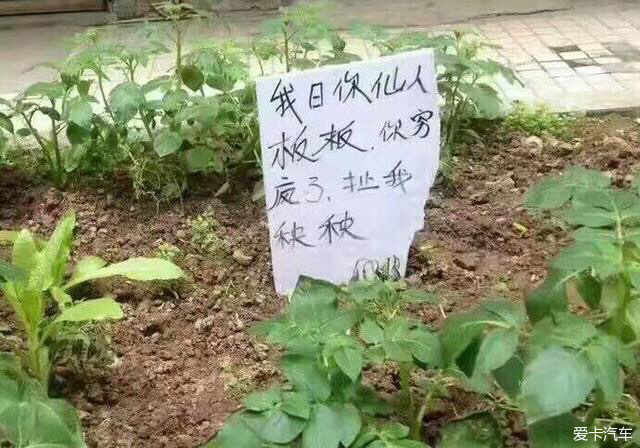 我日你仙人
板板.你穷
疯了.扯我
秧秧
爱卡汽车